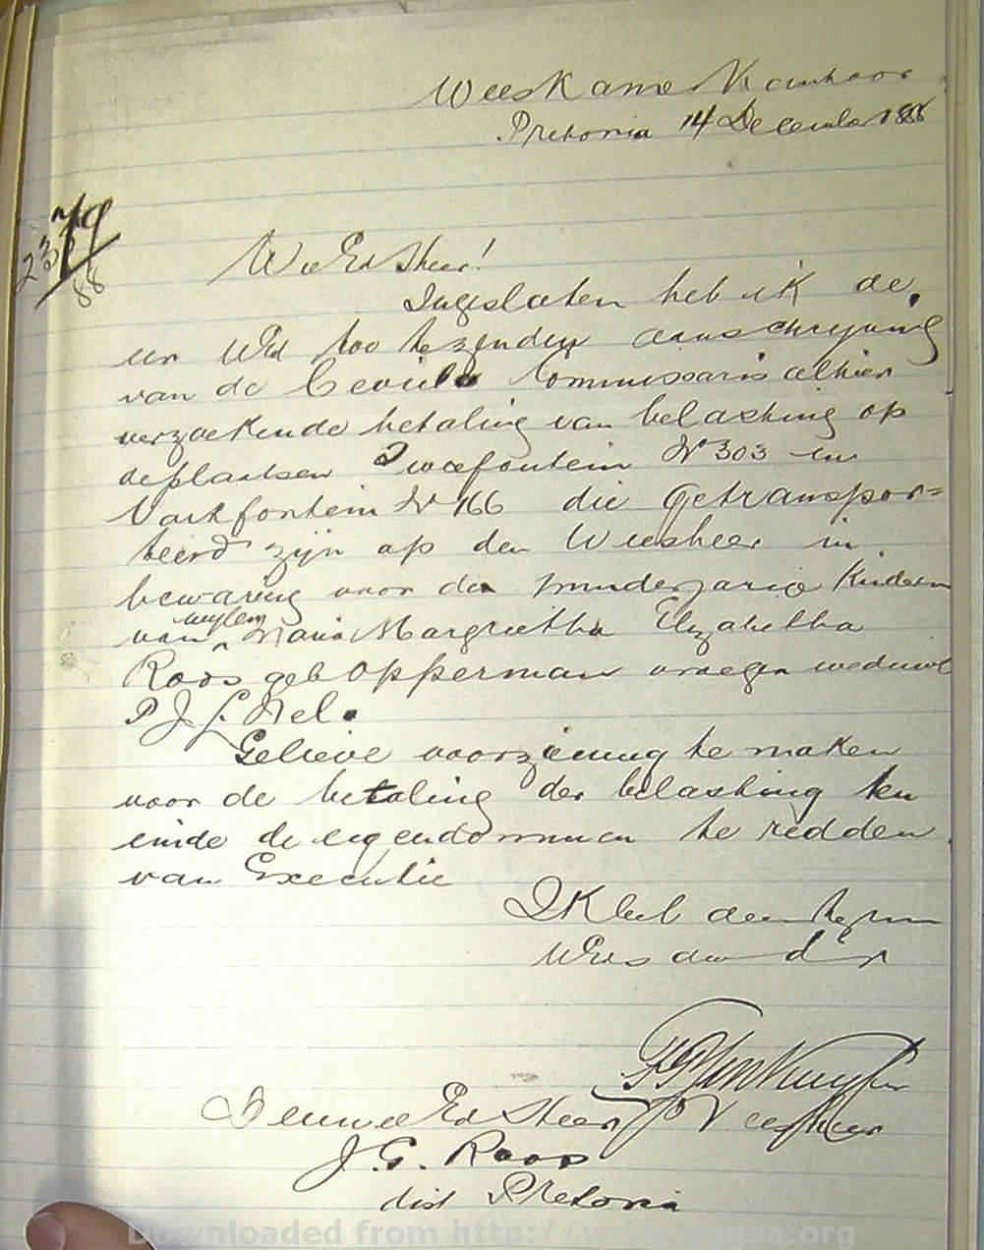 Weeskamer Kantoor
Pretoria 14 December 188
79
88
WelEd Heer!
Ingesloten heb ik de
eer UEd toe te zenden aanschrijving
van de Commissaris alhier
verzoekende betaling van belasting op
de plaatsen Tweefontein No 303 en
Varkfontein No 166 die getranspor=
teerd zijn op den Weesheer in
bewaring voor de minderjarige Kinderen
van wijlen Maria Margrietha Elizabetha
Roos geb Opperman vroeger weduwe
P J Nel.
Gelieve voorziening te maken
voor de betaling der belasting ten
einde de eigendommen te redden
van Executie
Ik heb de eer te zijn
UEds dw dr
Weesheer
Den Wel Ed Heer
J. G. Roos
dist Pretoria
Downloaded from http://www.eggsa.org